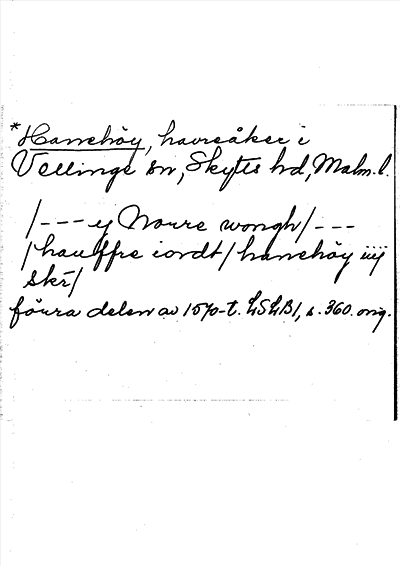 *Hanehöy, havreåker i
Vellinge sn, Skytts hd, Malm. l.
/--- y Nørre wongh/---
/hauffre iordt/ hanehöy iiij
skr/
förra delen av 1570-t. LSLB1, s. 360. orig.